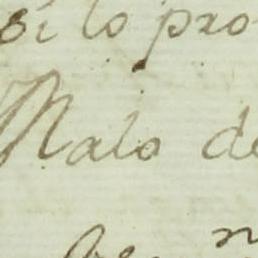 si lo pro
Malo de